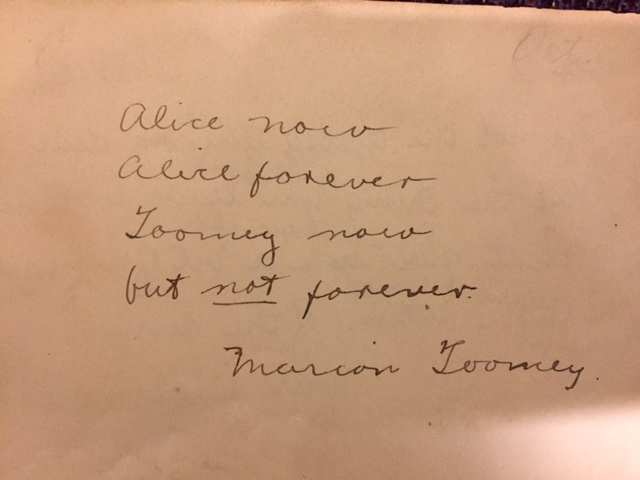 Alice now
Alice forever
Toomey now
but not forever.
Marion Toomey.